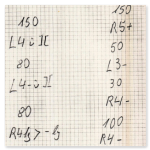 150
L4-ü II
80
L4-ü II
80
R4ɮ>-ɮ
150
R5+
50
L3-
30
R4-
100
R4-